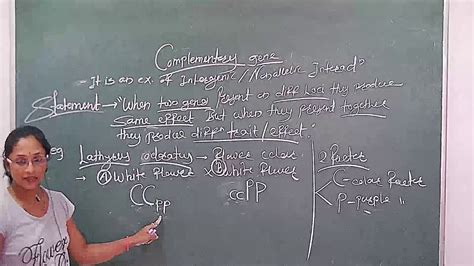 Complementary gene
- It is an ex. of Intergenic/Nonallelic Interacn
Statement → "When two genes present on diffr loci they produce
same effect But when they present together
they produce diffrn trait/effect."
eg Lathyrus odoratus → Flower colour
→ A White flower × B White flower
CCpp ccPP
2 factors
C- color factor
P- purple "
Flower